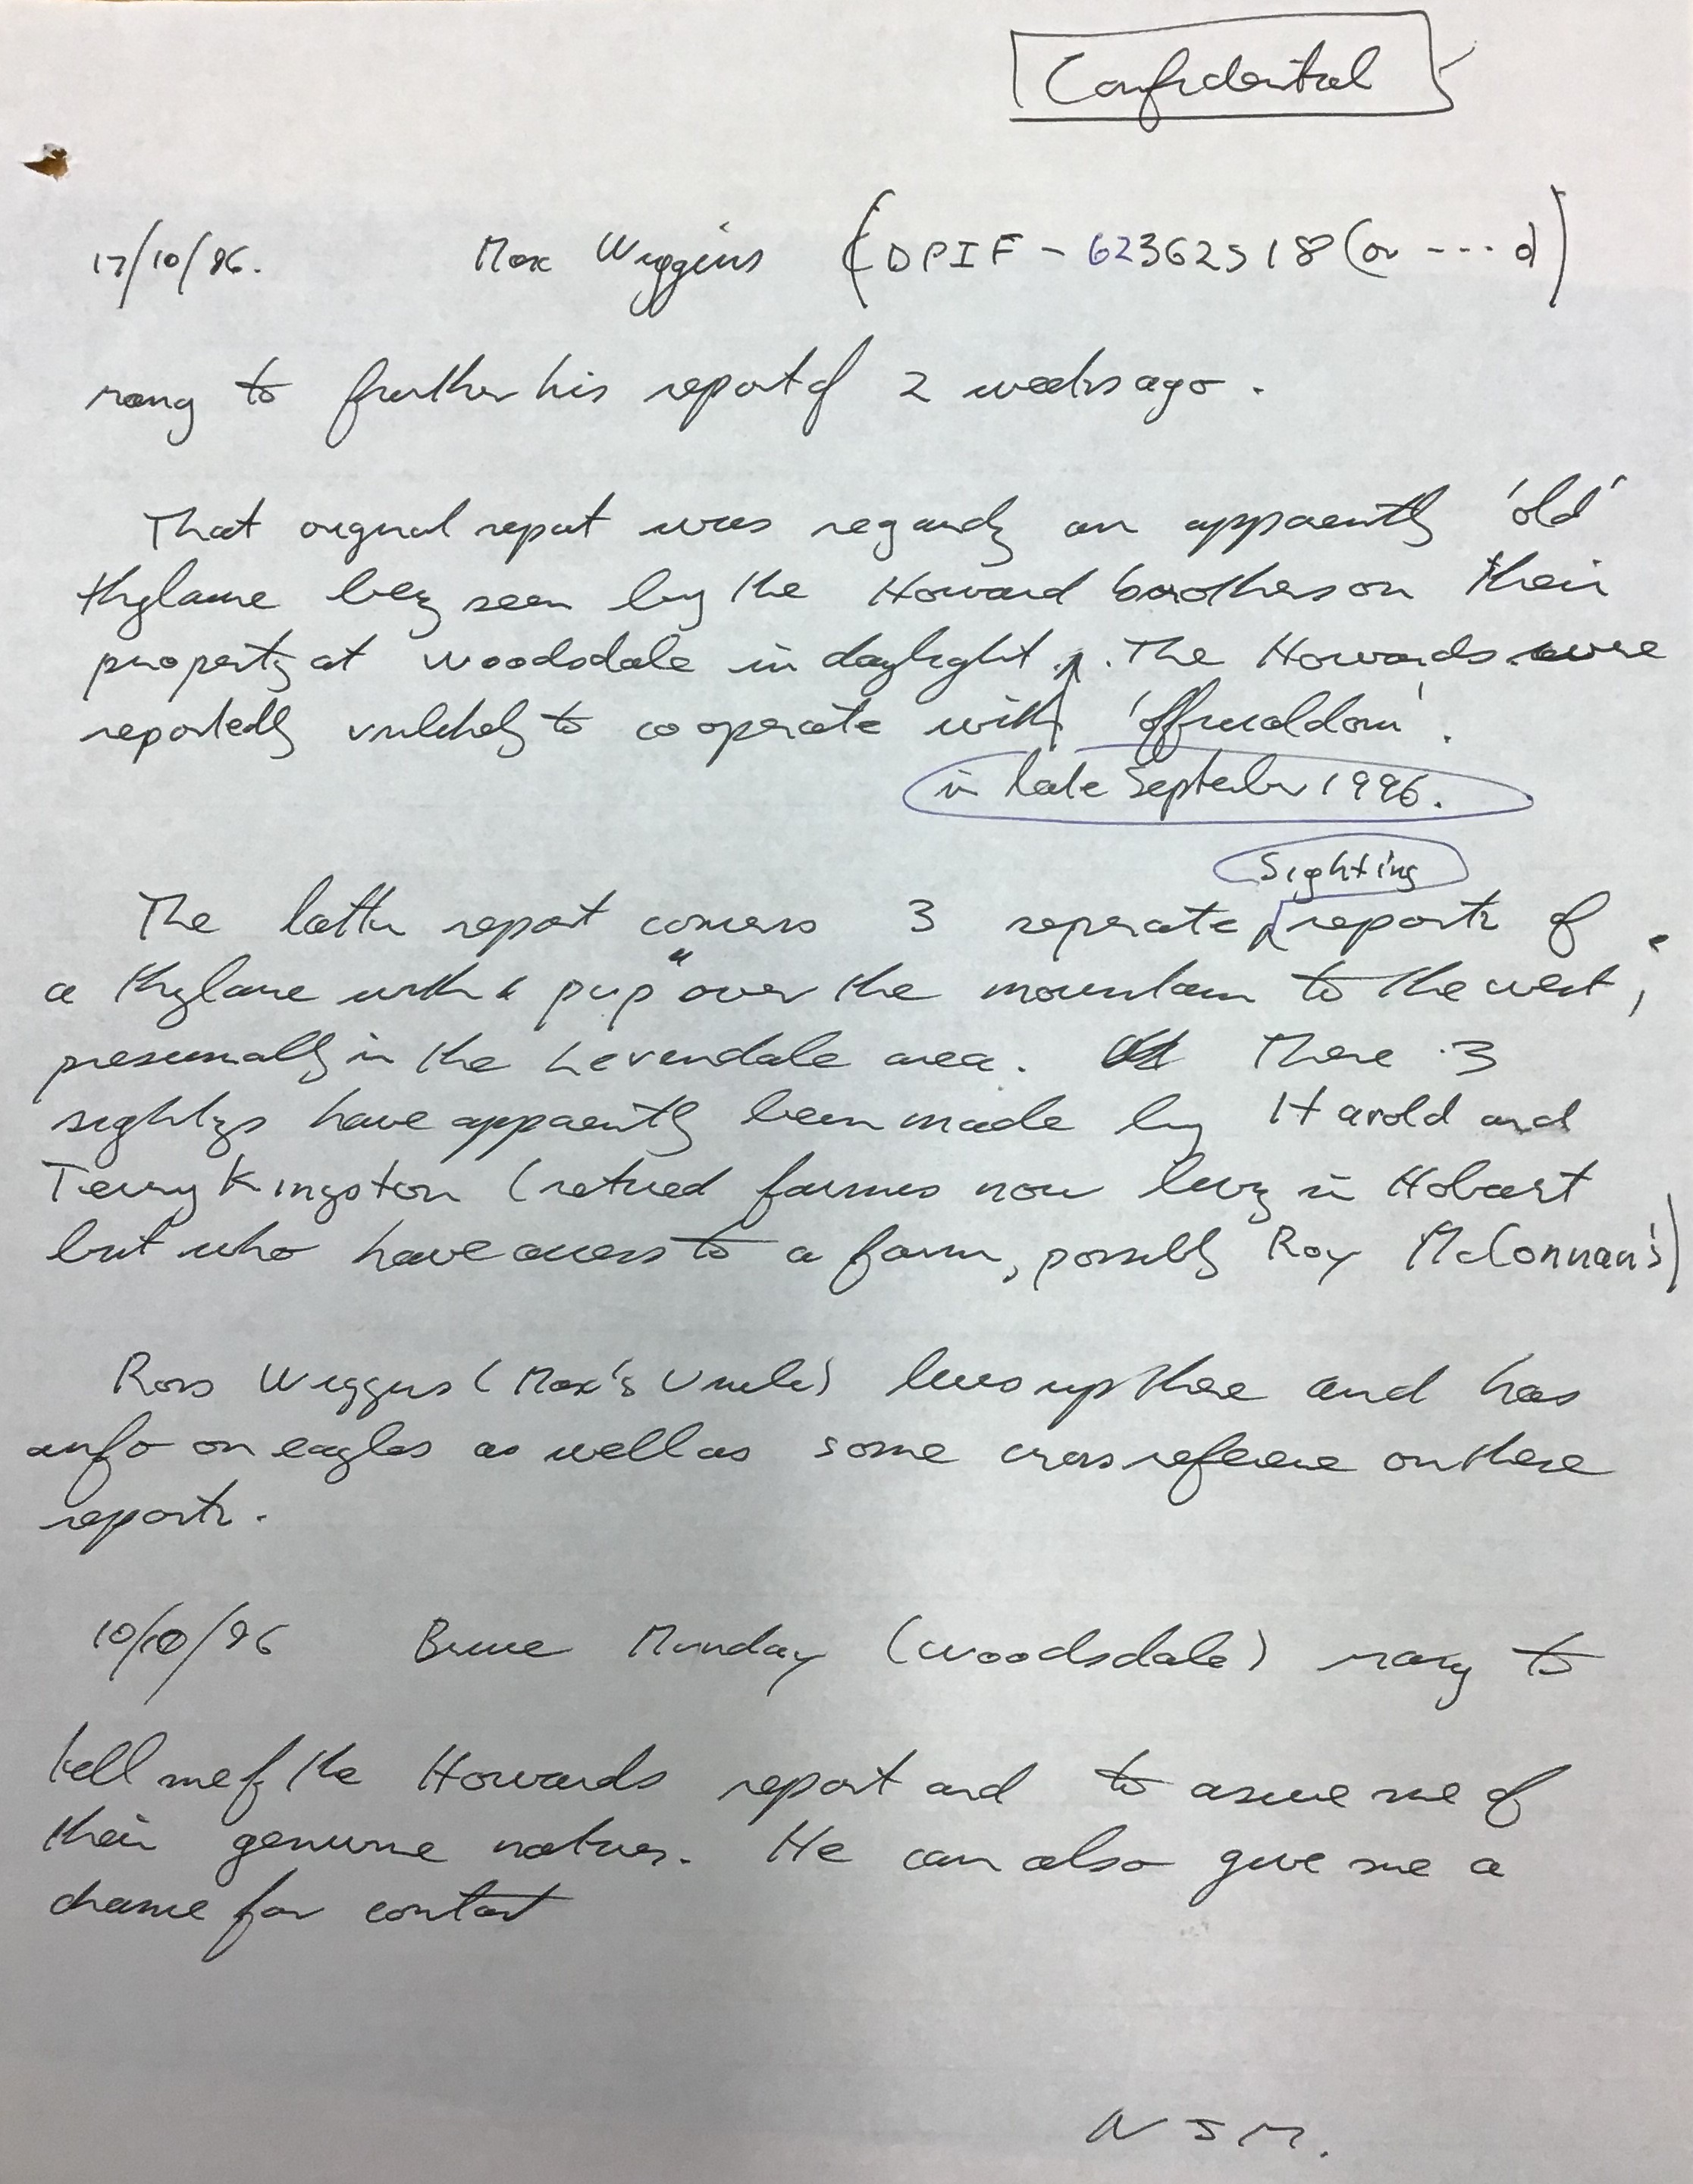 Confidential
17/10/96. Max Wiggins (DPIF - 62362518 (or ---- d)
rang to further his report of 2 weeks ago.
That original report was regarding an apparently 'old'
thylacine being seen by the Howard brothers on their
property at Woodsdale in daylight . The Howards were
reportedly unlikely to cooperate with 'officialdom'.
in late September 1996.
Sighting
The latter report concerns 3 seperate reports of
a thylacine with a "pup" over the mountain to the west,
presumably in the Levendale area. These 3
sightings have apparently been made by Harold and
Terry Kingston (retired farmers now living in Hobart
but who have access to a farm, possibly Roy McConnan's)
Ross Wiggins (Max's Uncle) lives up there and has
info on eagles as well as some cross reference on these
reports.
10/10/96 Bruce Munday (Woodsdale) rang to
tell me of the Howards report and to assure me of
their genuine natures. He can also give me a
chance for contact
N J M.